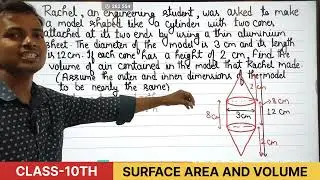 Rachel, an engineering student, was asked to make
a model shaped like a cylinder with two cones
attached at its two ends by using a thin aluminium
sheet. The diameter of the model is 3 cm and its length
is 12 cm. If each cone has a height of 2 cm, find the
volume of air contained in the model that Rachel made
(Assume the outer and inner dimensions of the model
to be nearly the same)
2cm
8cm
3cm
8cm
12 cm
2cm
CLASS-10TH
SURFACE AREA AND VOLUME